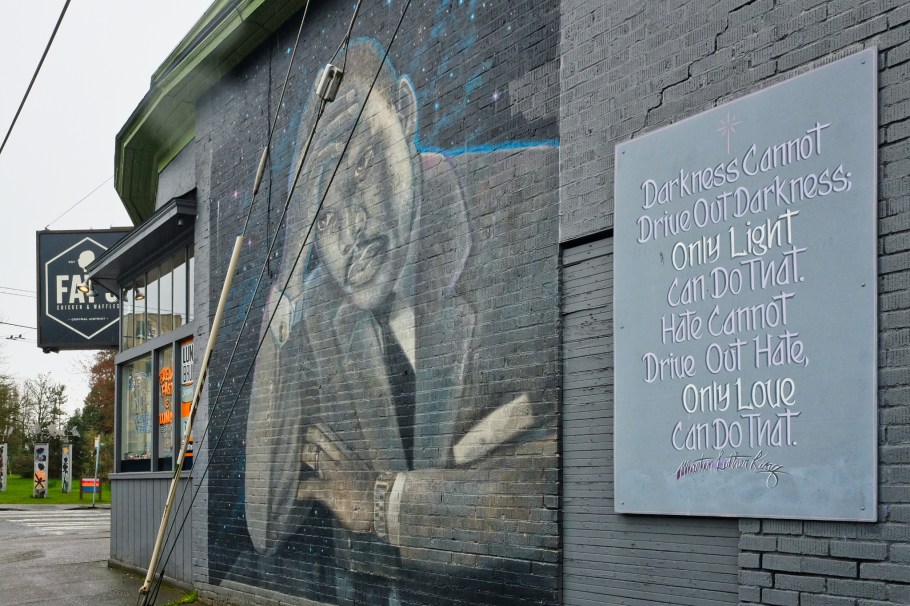 FAT'S
CHICKEN & WAFFLES
LUN
BRU
Darkness Cannot
Drive Out Darkness;
Only Light
Can Do That.
Hate Cannot
Drive Out Hate,
Only Love
Can Do That.
Martin Luther King